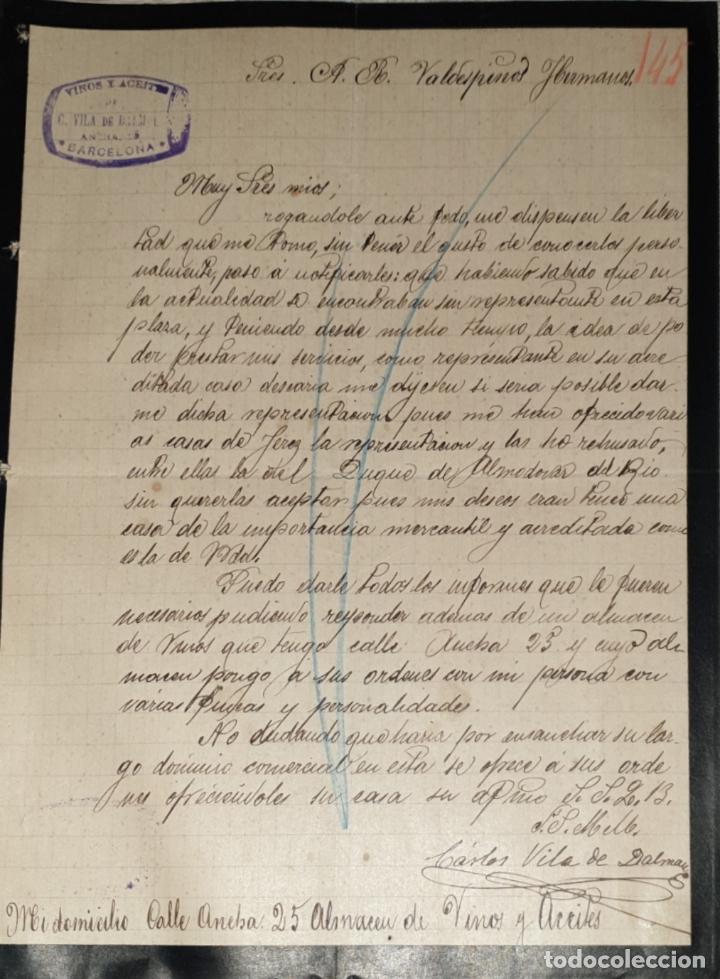 Sres. A. R. Valdespinos Hermanos.
145
VINOS Y ACEIT
DE
C. VILA DE DALMAU
ANCHA, 25
BARCELONA
Muy Sres mios;
rogandole ante todo, me dispensen la liber
tad que me tomo, sin tenér el gusto de conocerlos perso-
nalmente, paso á notificarles: que habiendo sabido que en
la actualidad se encontraban sin representante en esta
plaza, y teniendo desde mucho tiempo, la idea de po
der prestar mis servicios, como representante en su acre
ditada casa desearia me dijesen si seria posible dar-
me dicha representacion pues me han ofrecido vari
as casas de Jerez la representacion y las he rehusado,
entre ellas la del Duque de Almodovar del Rio
sin quererlas aceptar pues mis deseos eran tener una
casa de la importancia mercantil y acreditada como
es la de Vdd.
Puedo darle todos los informes que le fueren
necesarios pudiendo responder ademas de un almacen
de Vinos que tengo calle Ancha 25 y cuyo al
macen pongo a sus ordenes con mi persona con
varias firmas y personalidades.
No dudando que haria por ensanchar su lar-
go dominio comercial en esta se ofrece á sus orde
nes ofreciéndoles su casa su afmo S. S. Q. B.
S. S. M. M.
Cárlos Vila de Dalmau
Mi domicilio Calle Ancha 25 Almacen de Vinos y Aceites
todocoleccion